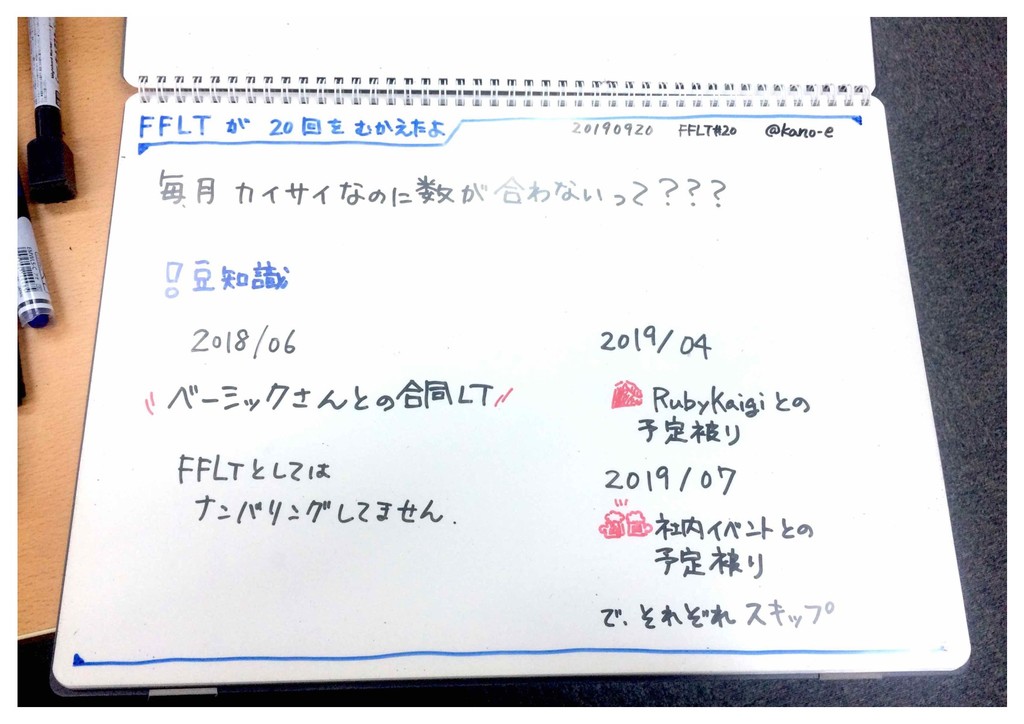 FFLTが 20回をむかえたよ
20190920 FFLT#20 @kano-e
毎月カイサイなのに数が合わないって???
!豆知識
2018/06
ベーシックさんとの合同LT
FFLTとしては
ナンバリングしてません.
2019/04
RubyKaigiとの
予定被り
2019/07
社内イベントとの
予定被り
で、それぞれスキップ